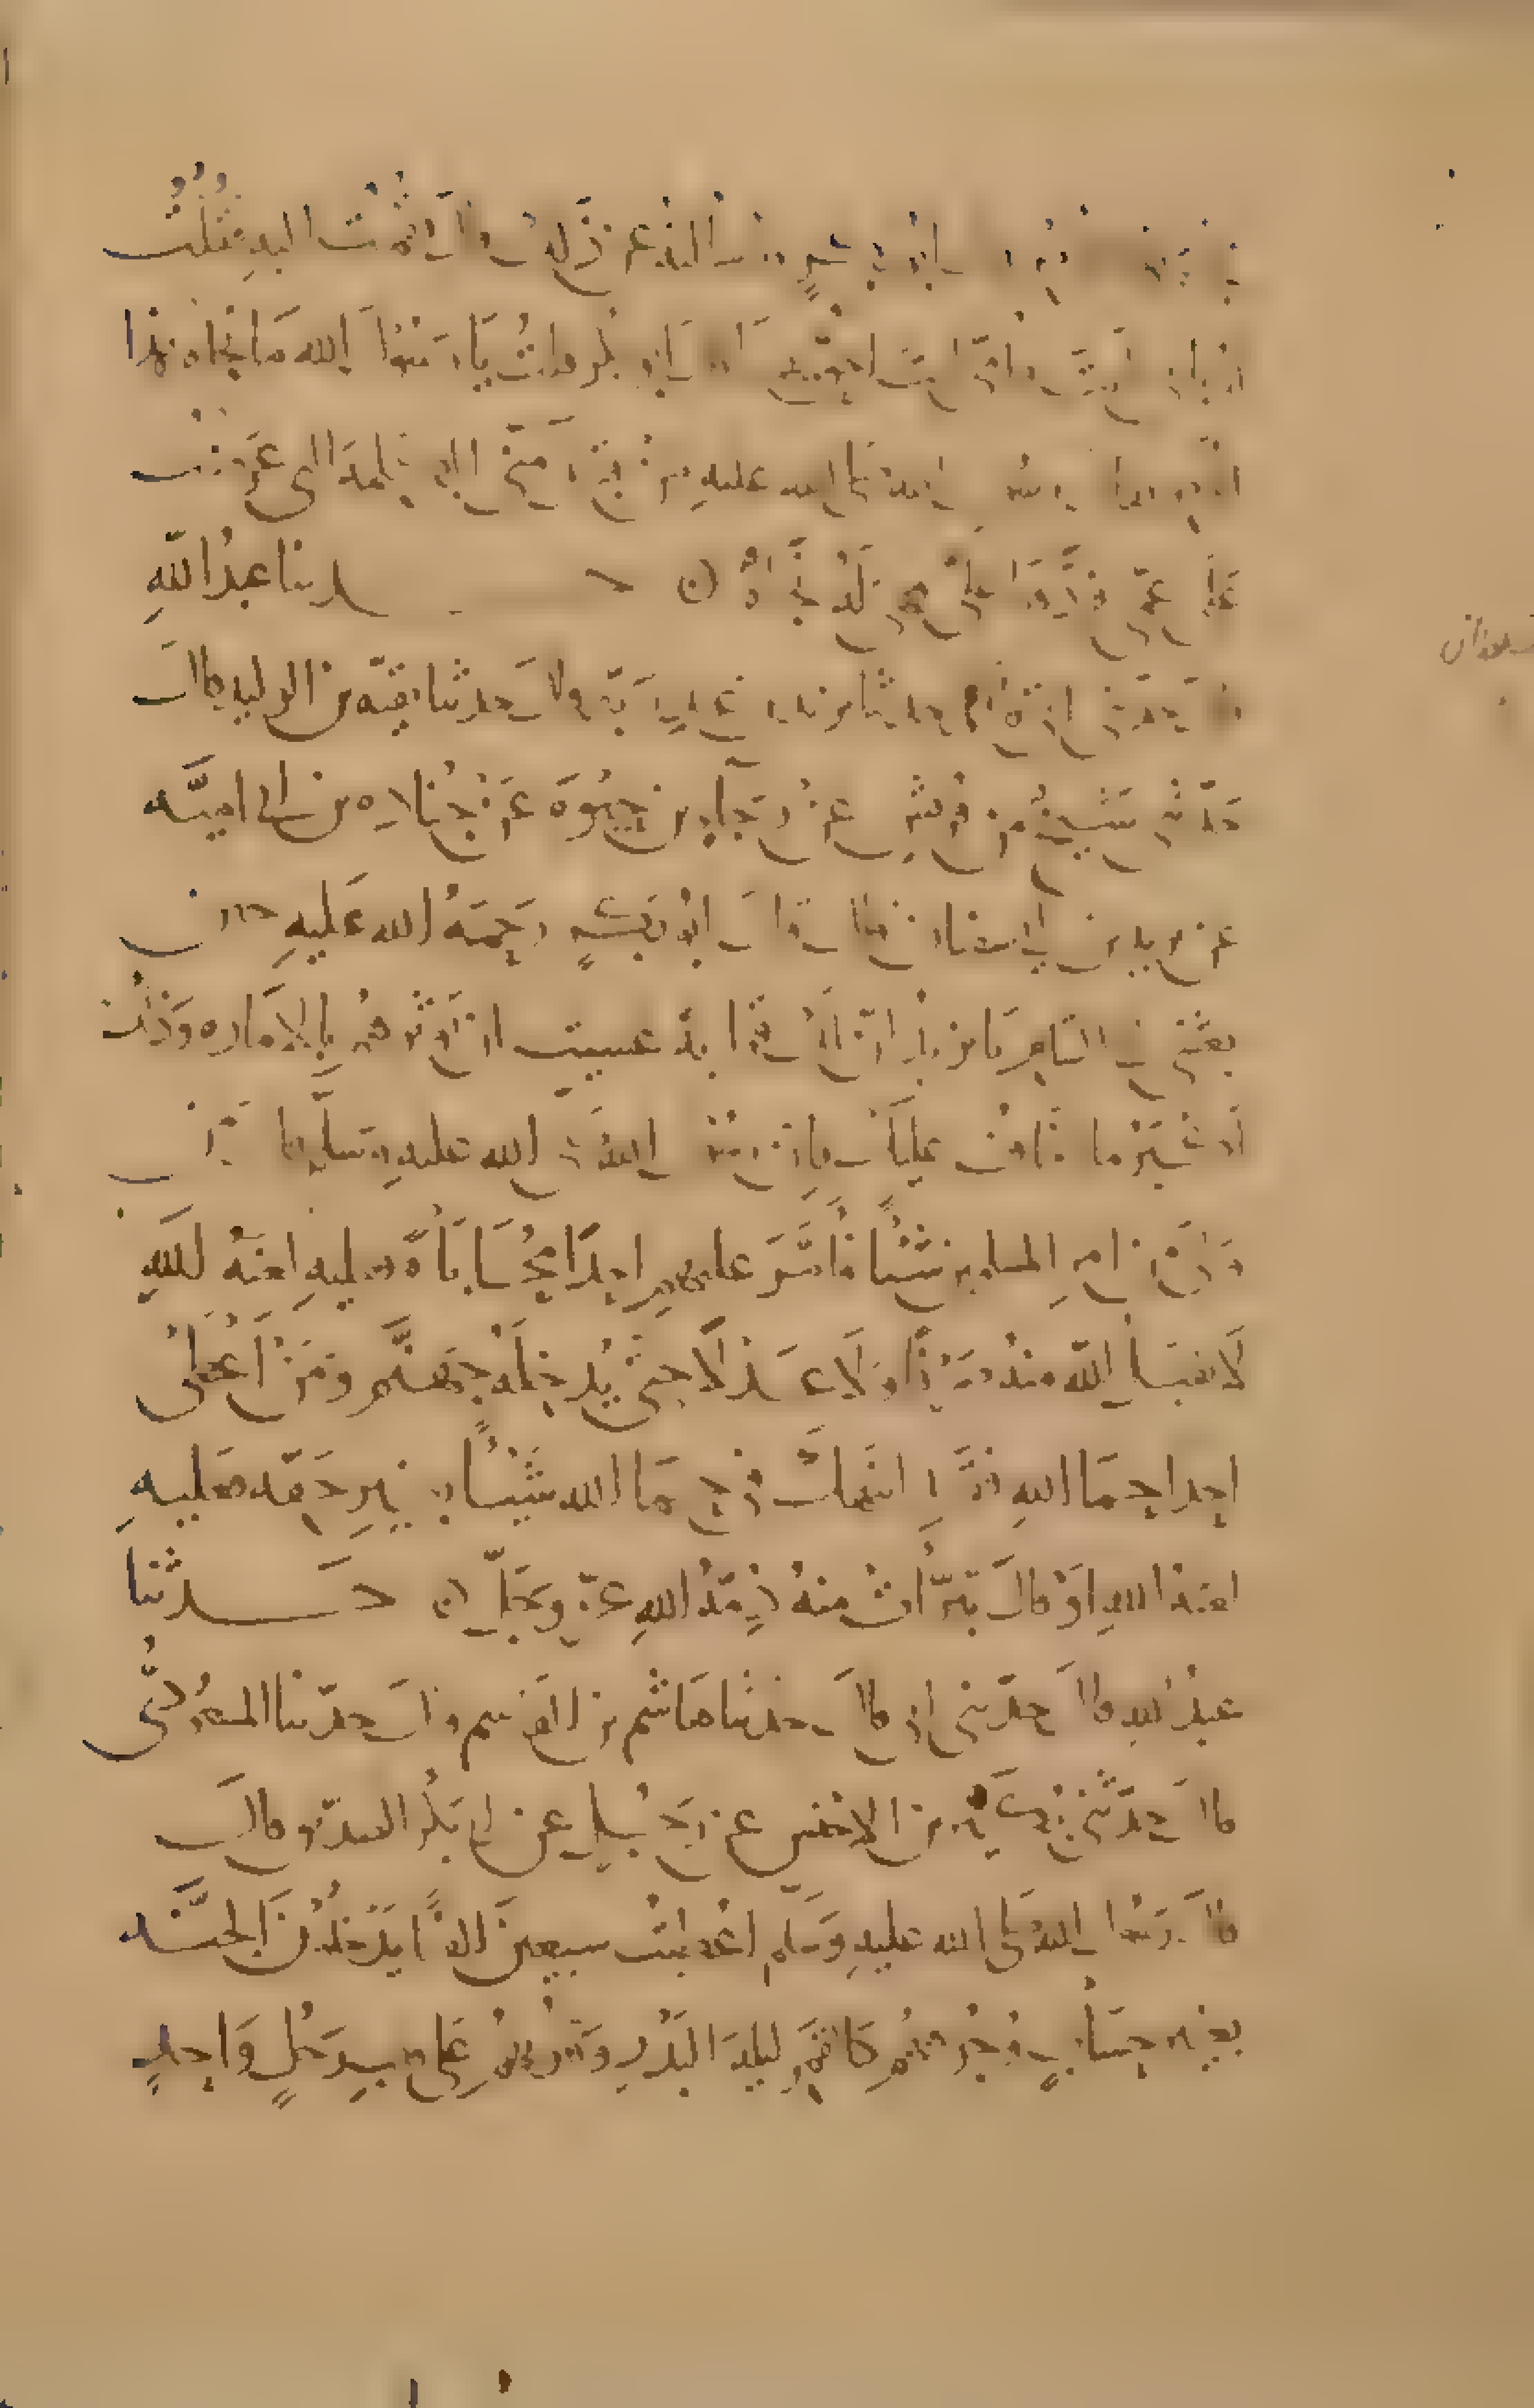 سألته عن ذلك قال فقمت اليه فقلت
قال ابو بكر قلت يا رسول الله ما نجاة هذا
رسول الله صلى الله عليه من قبل مني الكلمة التي عرضت
على عمي فردها علي فهي له نجاة حدثنا عبد الله
قال حدثني ابي حدثنا يزيد بن عبد ربه قال حدثنا بقية بن الوليد قال
حدثني شيخ من قريش عن رجاء بن حيوة عن جنادة بن ابي امية
عن يزيد بن ابي سفيان قال قال ابو بكر رحمة الله عليه حين
بعثني الى الشام يا يزيد ان لك قرابة عسيت ان تؤثرهم بالامارة وذلك
اكبر ما اخاف عليك فان رسول الله صلى الله عليه وسلم قال من
ولي من امر المسلمين شيئا فامر عليهم احدا محاباة فعليه لعنة الله
لا يقبل الله منه صرفا ولا عدلا حتى يدخله جهنم ومن اعطى
احدا حمى الله فقد انتهك في حمى الله شيئا بغير حقه فعليه
لعنة الله او قال تبرأت منه ذمة الله عز وجل حدثنا
عبد الله قال حدثني ابي قال حدثنا هاشم بن القاسم قال حدثنا المسعودي
قال حدثني بكير بن الاخنس عن رجل عن ابي بكر الصديق قال
قال رسول الله صلى الله عليه وسلم اعطيت سبعين الفا يدخلون الجنة
بغير حساب وجوههم كالقمر ليلة البدر وقلوبهم على قلب رجل واحد